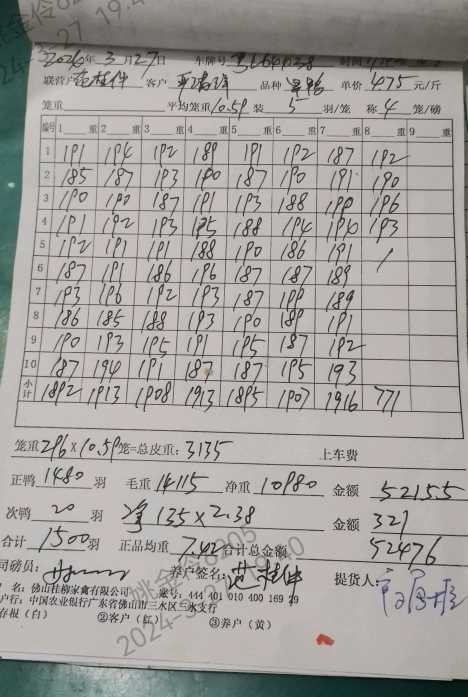 2024年3月27日 车牌号
联营户 范桂伴 客户 品种 单价 4.75 元/斤
笼重 平均笼重 10.59 装 5 羽/笼 称 4 笼/磅
编号 1 重 2 重 3 重 4 重 5 重 6 重 7 重 8 重 9 重
1 191 194 192 189 191 192 187 192
2 185 187 193 190 187 190 191 190
3 190 190 187 191 193 188 190 196
4 191 192 193 195 188 194 190 193
5 192 191 191 188 190 186 191 /
6 187 191 186 196 187 187 189
7 193 196 192 193 187 199 189
8 186 185 188 193 190 189 191
9 190 193 195 191 195 187 192
10 187 194 191 187 187 195 193
小计 1892 1913 1908 1913 1895 1907 1916 771
笼重 296 × 10.59 笼=总皮重: 3135 上车费
正鸭 1480 羽 毛重 14115 净重 10980 金额 52155
次鸭 20 羽 净 135 × 2.38 金额 321
合计 1500 羽 正品均重 7.42 合计总金额 52476
司磅员: 养户签名: 范桂伴 提货人:
名: 佛山桂柳家禽有限公司 账号: 444 401 010 400 169 29
户行: 中国农业银行广东省佛山市三水区三水支行
存根(白) ②客户(红) ③养户(黄)